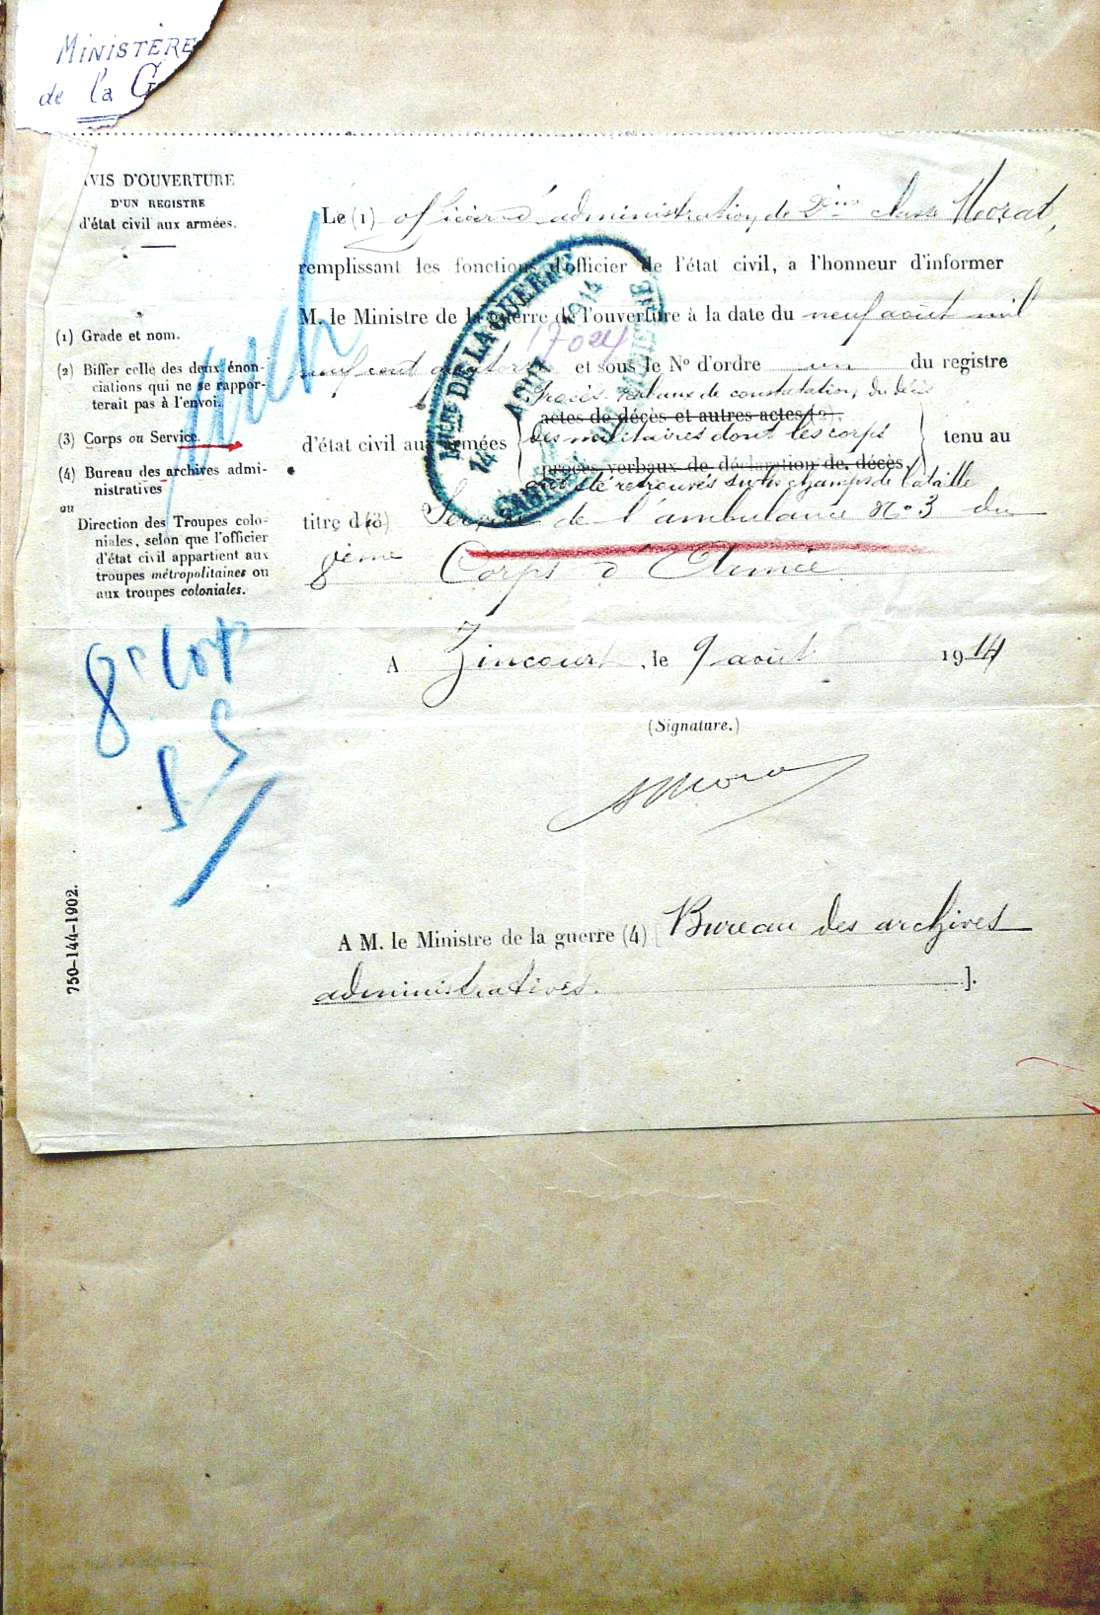 MINISTÈRE
de la G
VIS D'OUVERTURE
D'UN REGISTRE
d'état civil aux armées.
(1) Grade et nom.
(2) Biffer celle des deux énon-
ciations qui ne se rappor-
terait pas à l'envoi.
(3) Corps ou Service.
(4) Bureau des archives admi-
nistratives
ou
Direction des Troupes colo-
niales, selon que l'officier
d'état civil appartient aux
troupes métropolitaines ou
aux troupes coloniales.
8e Corps
750-144-1902.
Le (1) officier d'administration de 2ème classe Morat,
remplissant les fonctions d'officier de l'état civil, a l'honneur d'informer
M. le Ministre de la guerre de l'ouverture à la date du neuf août mil
neuf cent quatorze et sous le N° d'ordre un du registre
Procès verbaux de constatation du décès
actes de décès et autres actes (2).
d'état civil aux armées des militaires dont les corps tenu au
procès-verbaux de déclaration de décès,
ont été retrouvés sur les champs de bataille
titre d(3) Service de l'ambulance N° 3 du
8ème Corps d'Armée
A Zincourt, le 9 août 1914
(Signature.)
Morat
A M. le Ministre de la guerre (4) [Bureau des archives
administratives.].
MIN DE LA GUERRE
14 AOUT 1914